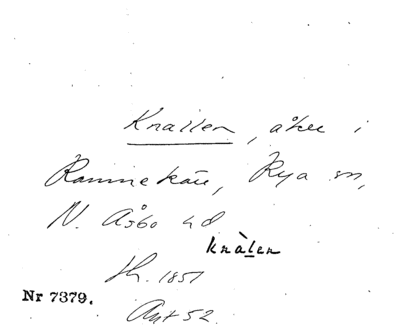 Knallen, åker i
Rammekärr, Rya sn,
N. Åsbo hd
knàlen
sk. 1857
Nr 7379.
Ant 52.